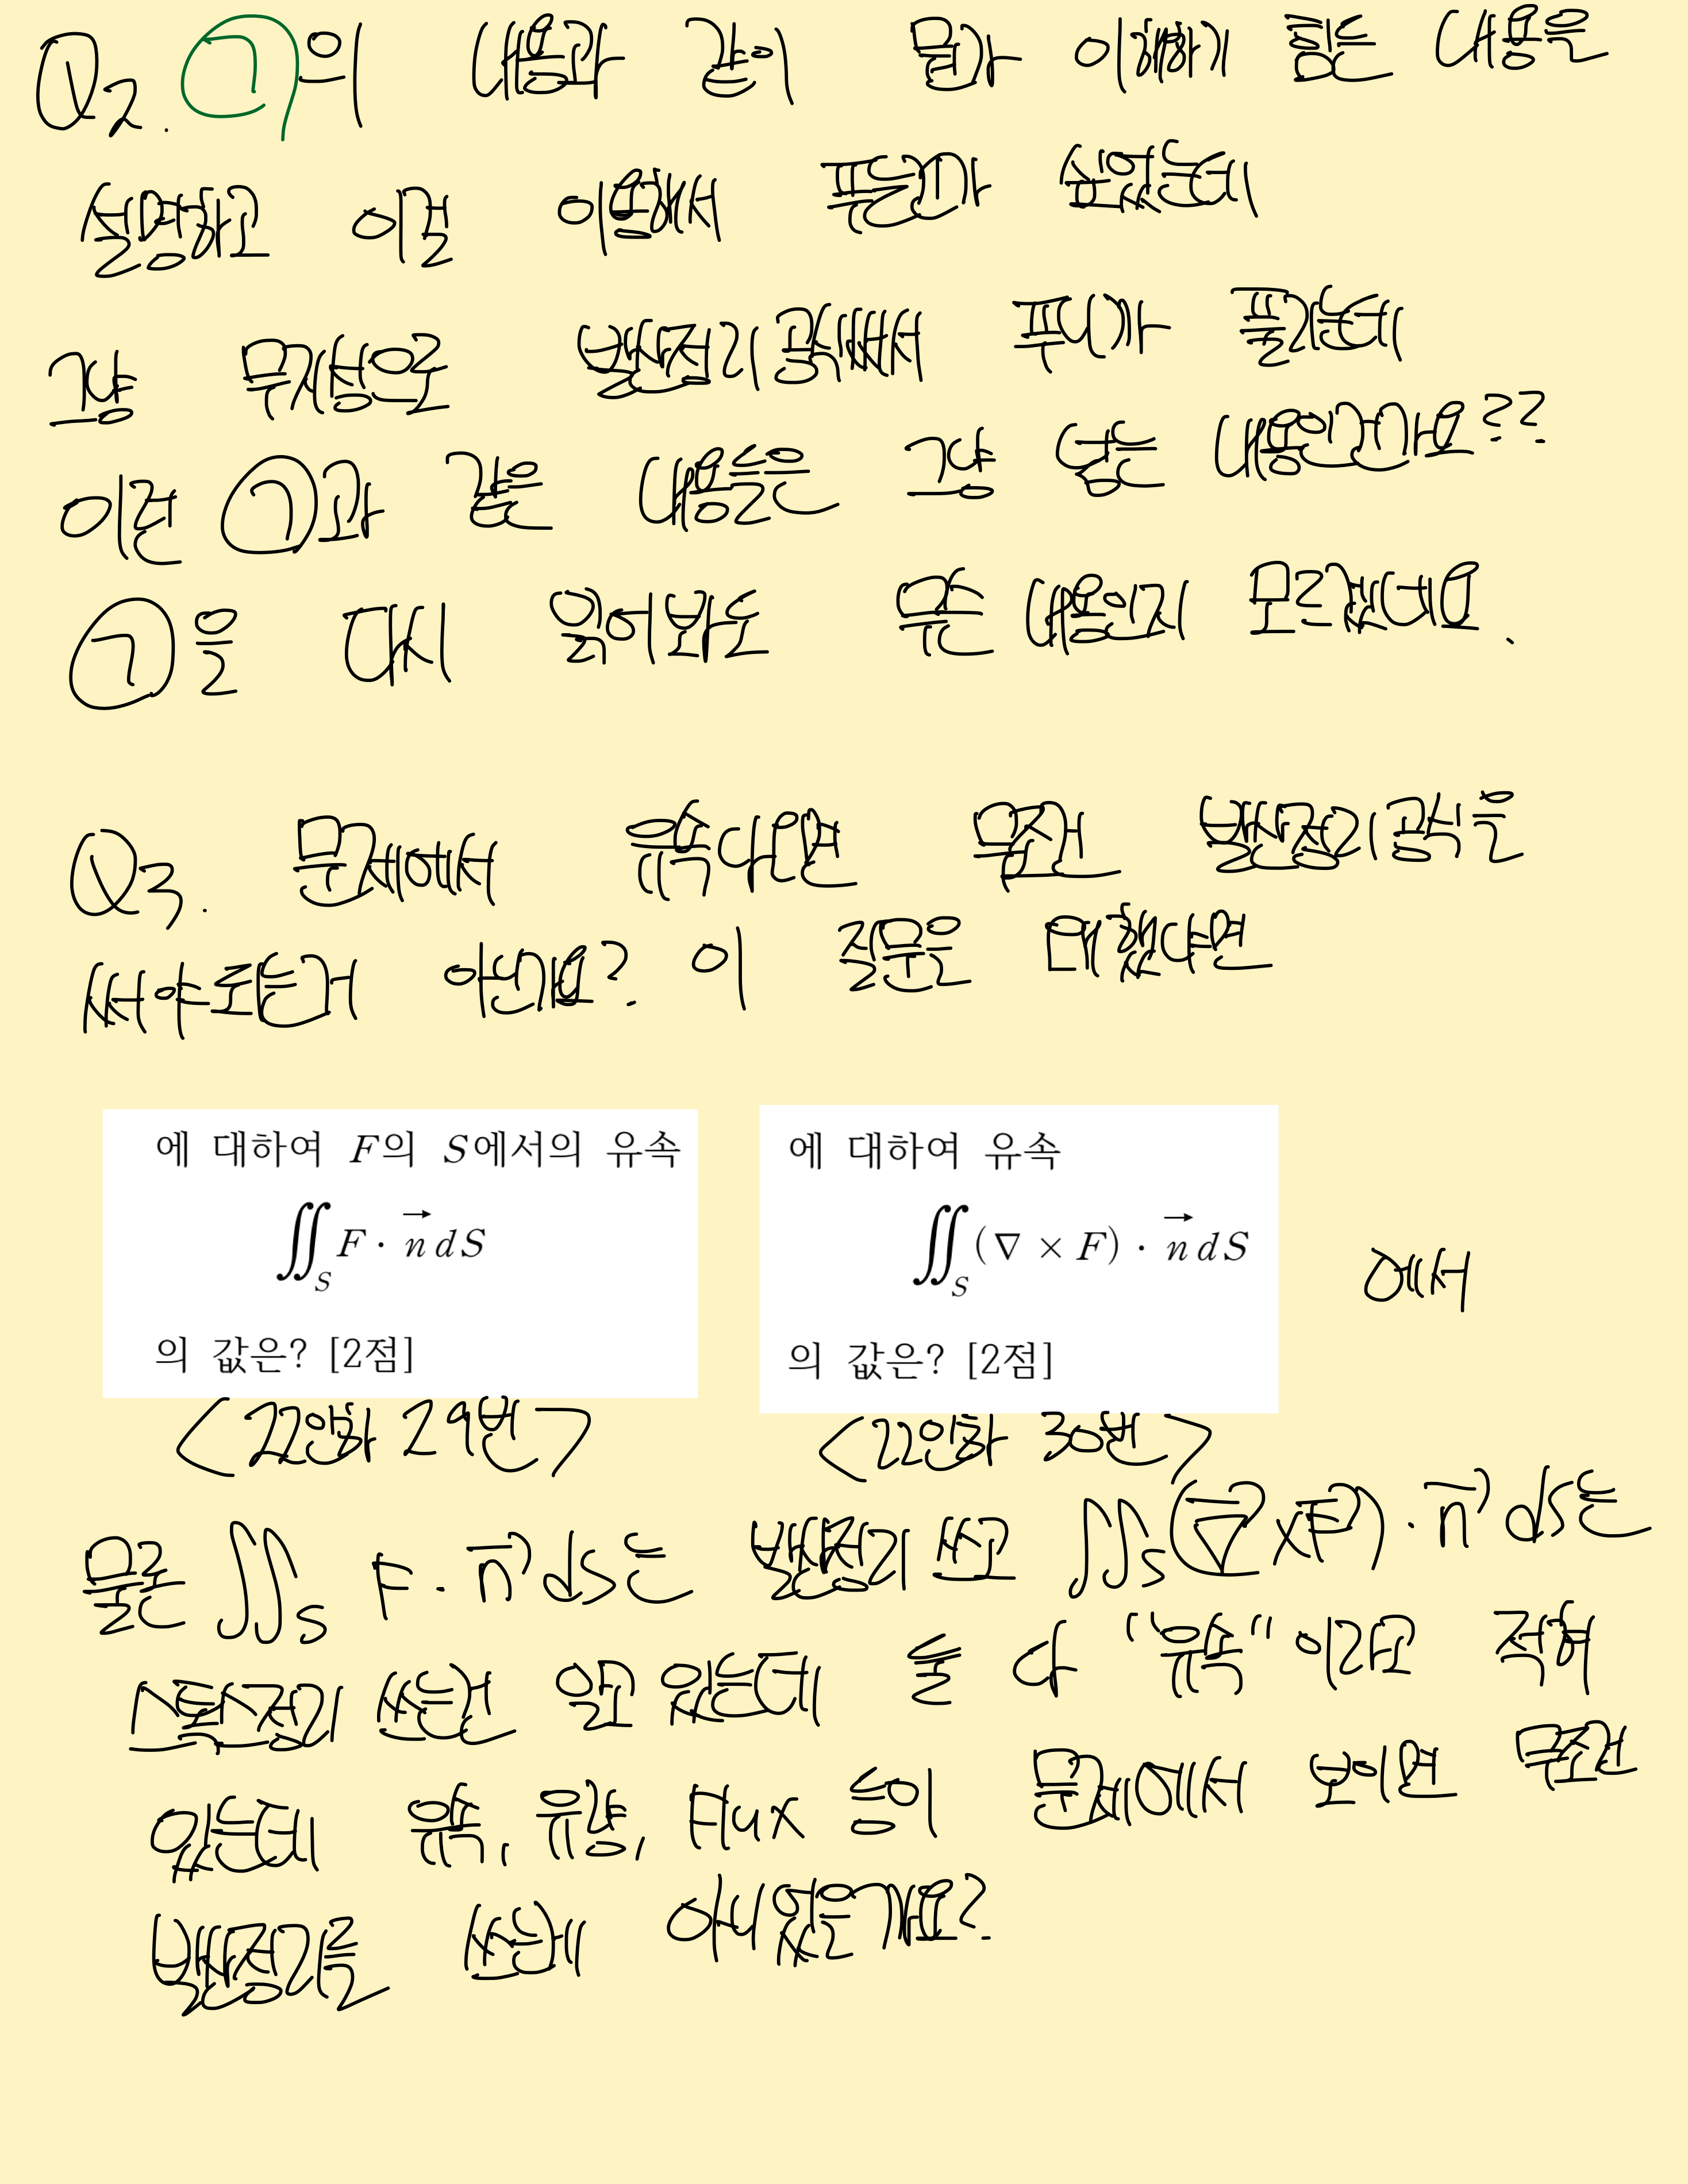 Q2. ㉠의 내용과 같이 뭔가 이해하기 힘든 내용을
설명하고 이걸 이용해서 푸는건가 싶었는데
그냥 무지성으로 발산정리 공식써서 푸니까 풀리는데
이런 ㉠과 같은 내용들은 그냥 넣는 내용인건가요??
㉠을 다시 읽어봐도 무슨 내용인지 모르겠네요.
Q3. 문제에서 유속다면 무조건 발산정리 공식을
써야되는거 아닌가요? 이 질문을 왜했냐면
에 대하여 F의 S에서의 유속
∬_S F · n⃗ dS
의 값은? [2점]
<22인하 29번>
에 대하여 유속
∬_S (∇ × F) · n⃗ dS
의 값은? [2점]
<22인하 30번>
에서
물론 ∬_S F · n⃗ ds는 발산정리 쓰고 ∬_S (∇⃗ × F⃗) · n⃗ ds는
스톡스정리 쓰는건 알고 있는데 둘 다 "유속"이라고 적혀
있는데 유속, 유량, Flux 등이 문제에서 보이면 무조건
발산정리를 쓰는게 아니었는가요?